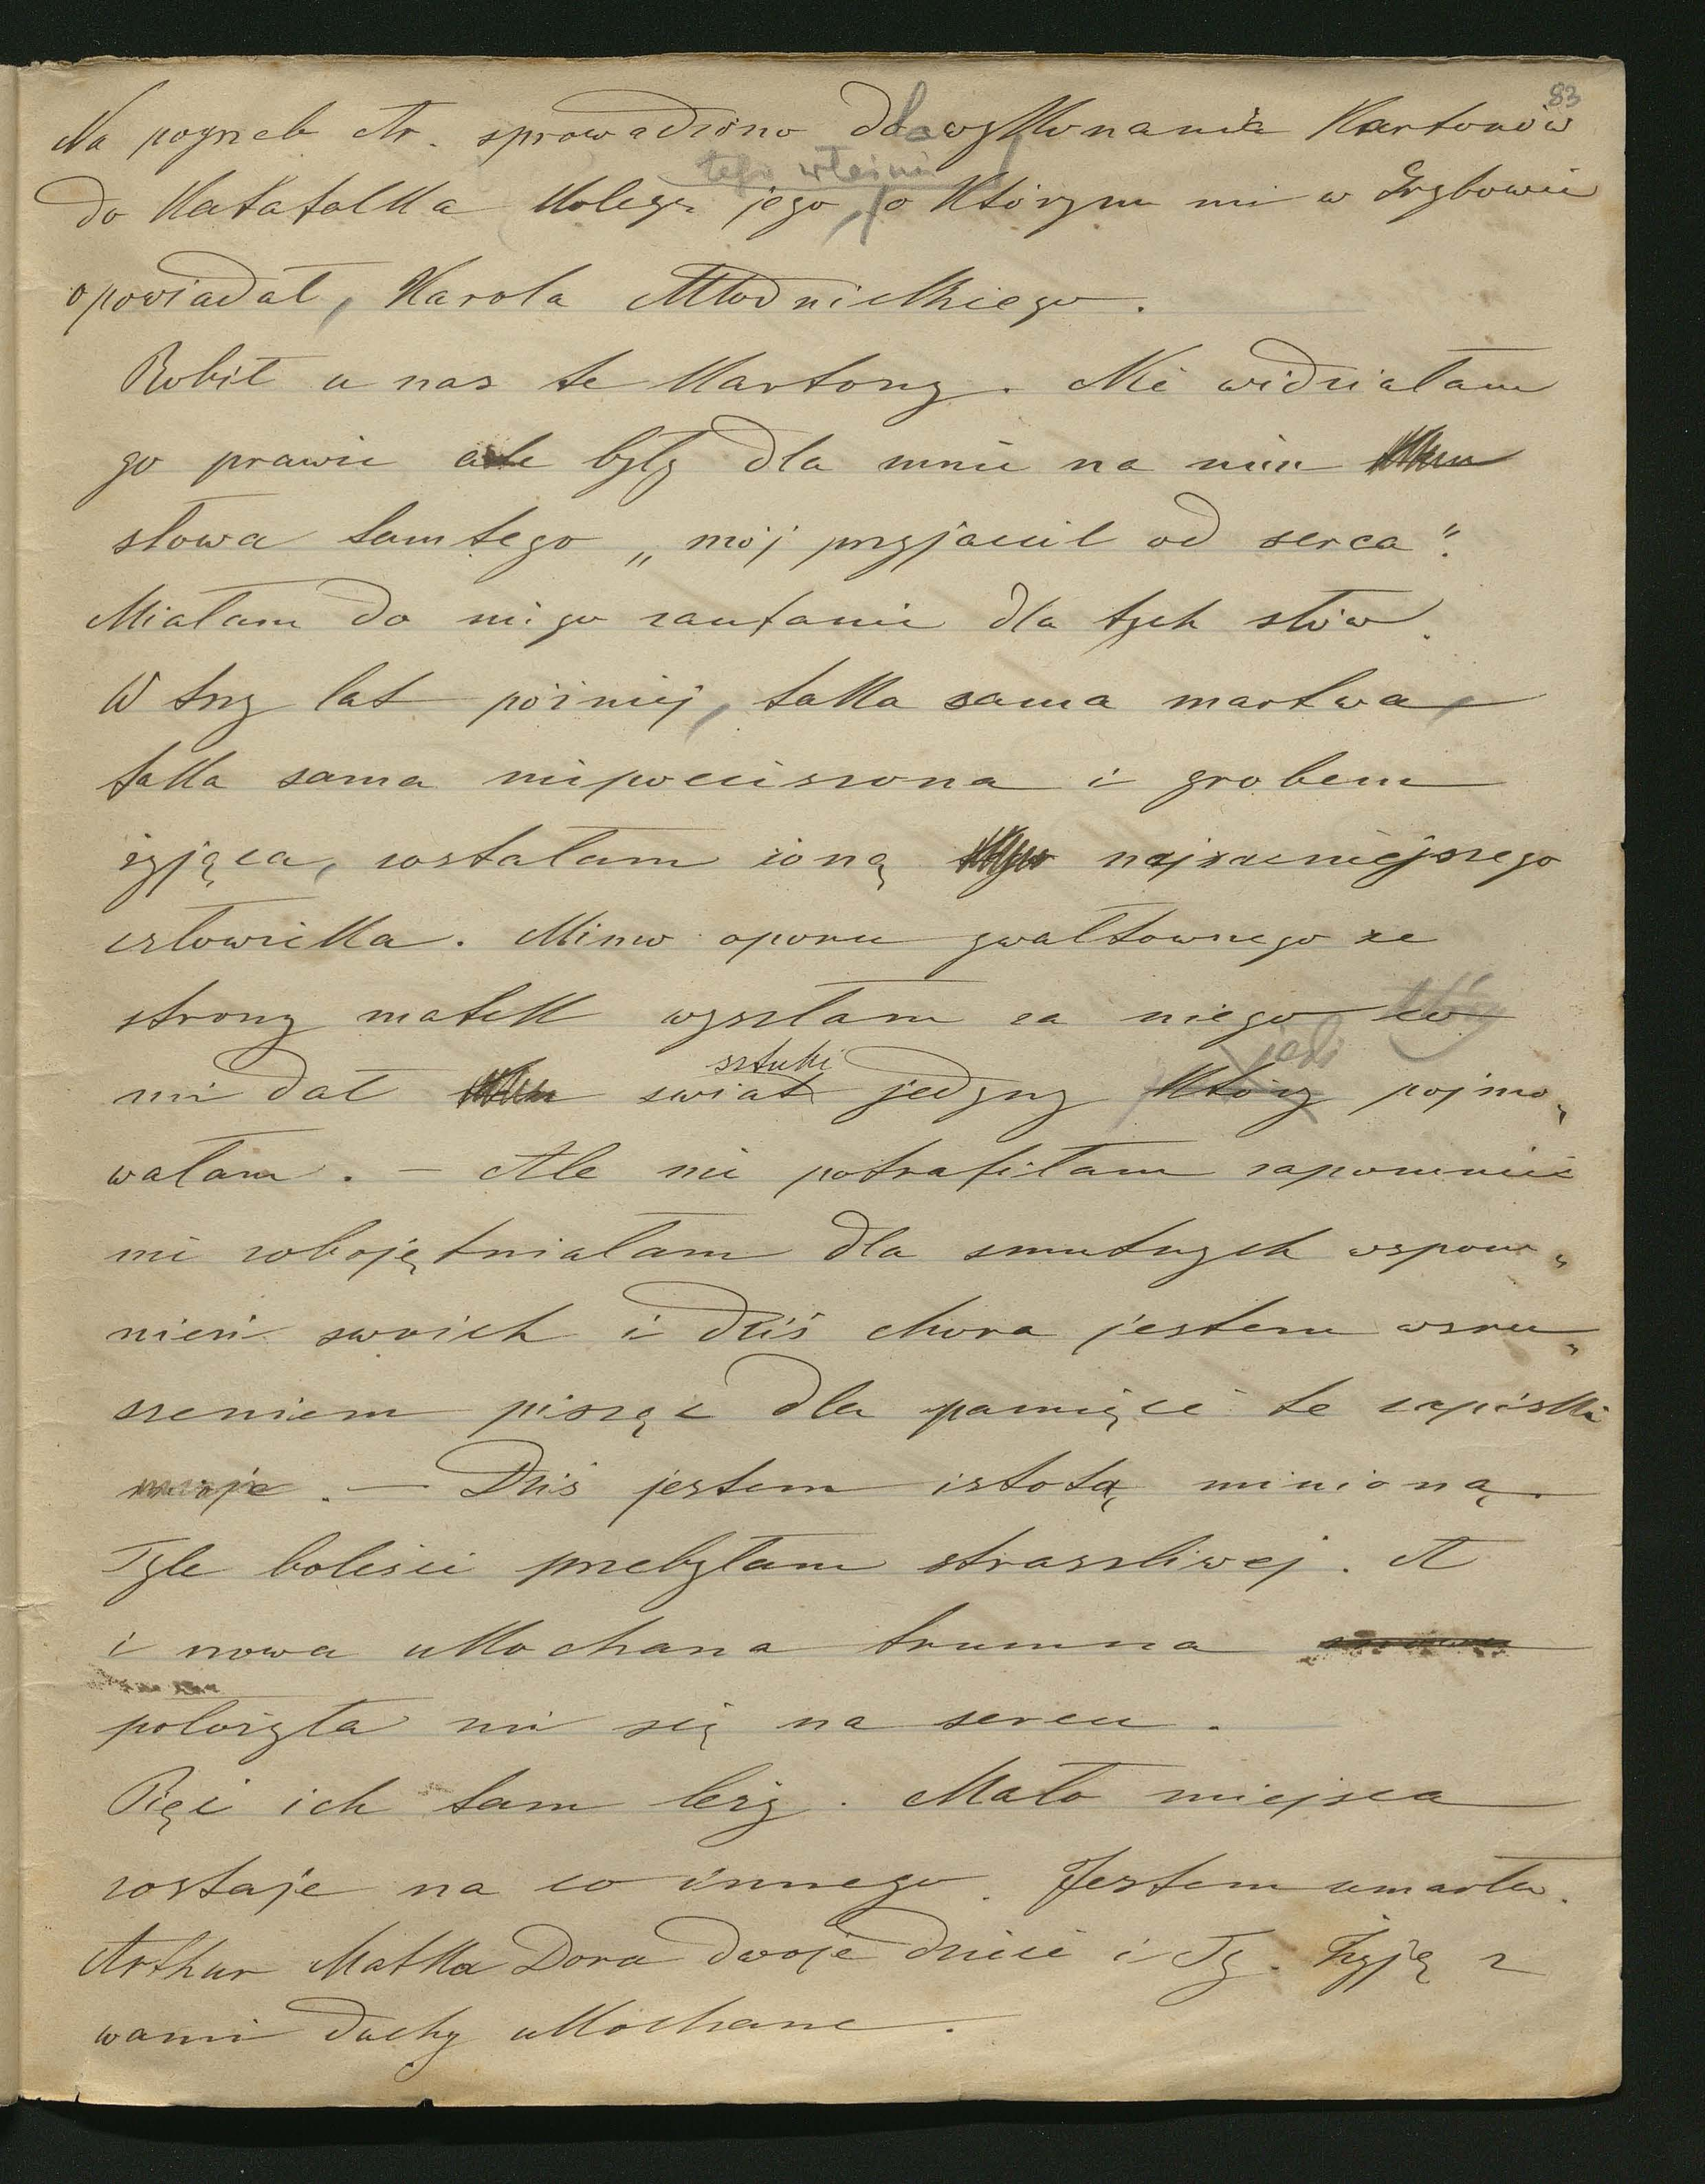 83
Na pogrzeb Ar. sprowadzono dla wykonania Kartonów
tego właśnie
do Katafalka kolegę jego, o którym mi w Grybowie
opowiadał, Karola Młodnickiego.
Robił u nas te kartony. Nie widziałam
go prawie ale były dla mnie na nim
słowa tamtego „mój przyjaciel od serca".
Miałam do niego zaufanie dla tych słów.
W trzy lat później, taka sama martwa,
taka sama niepocieszona i grobem
żyjąca, zostałam żoną najzacniejszego
człowieka. Mimo oporu gwałtownego ze
strony matek wyszłam za niego
sztuki jeśli
mi dał świat jedyny który pojmo„
wałam. — Ale nie potrafiłam zapomnieć
nie zobojętniałam dla smutnych wspom„
nień swoich i dziś chora jestem wzru„
szeniem pisząc dla pamięci te zapiski
moje. — Dziś jestem istotą minioną.
Tyle boleści przebyłam straszliwej. A
i nowa ukochana trumna
położyła mi się na sercu.
Pięć ich tam leży. Mało miejsca
zostaje na co innego. Jestem umarła.
Arthur Matka Dora dwoje dzieci i Ty. Żyję z
wami duchy ukochane.